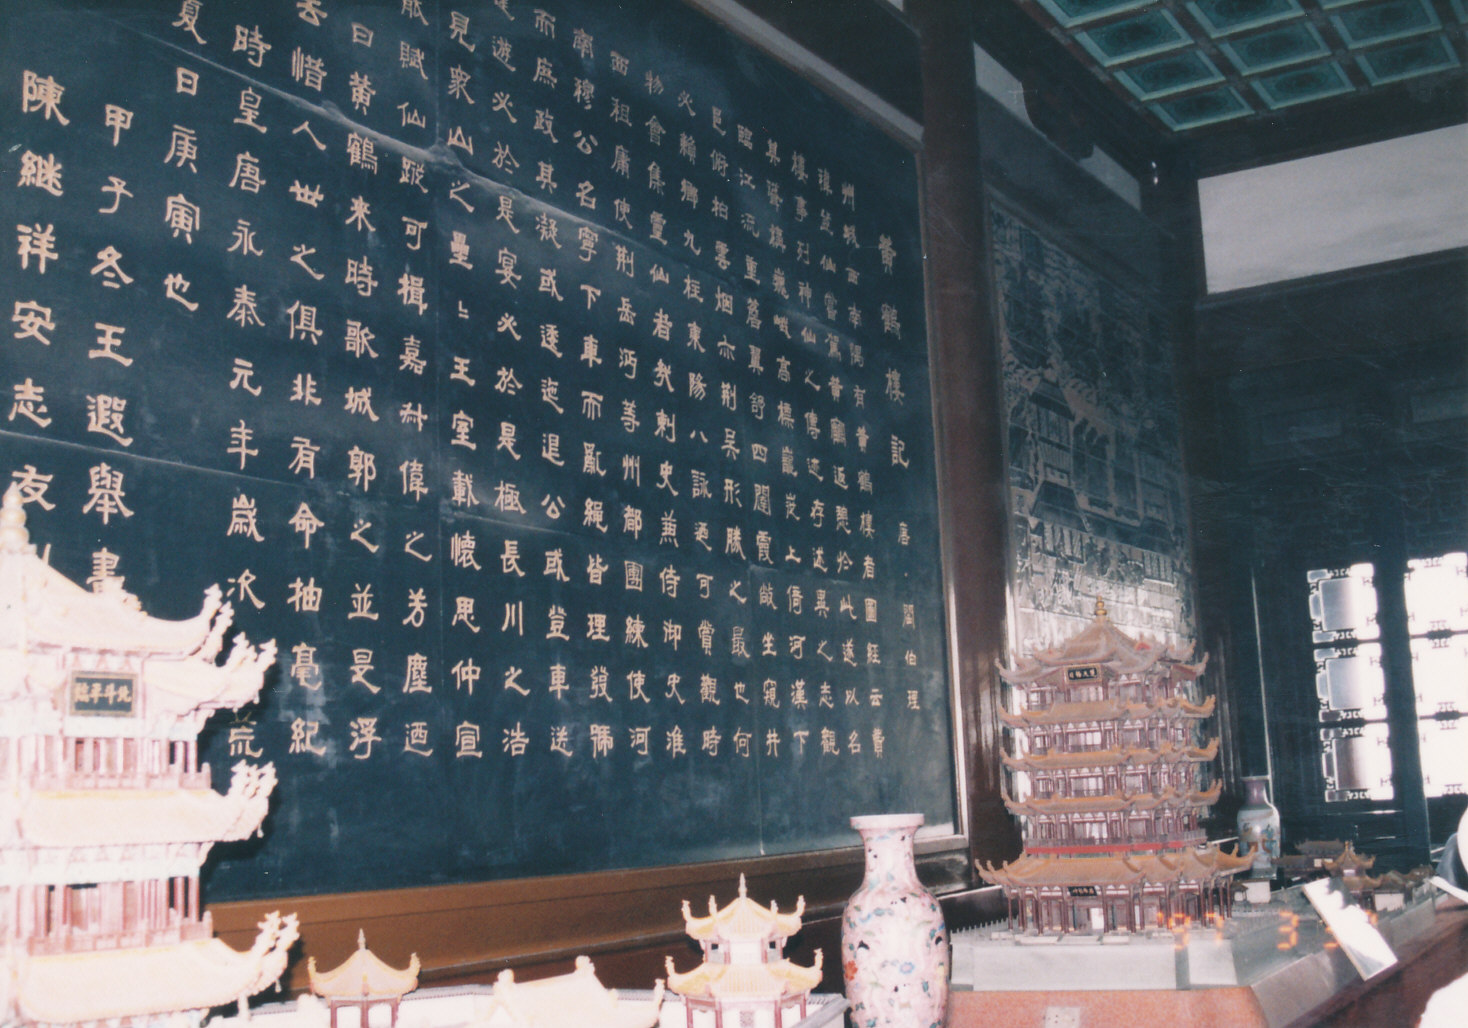 黃鶴樓記 唐·閻伯理
州城西南隅有黃鶴樓者圖經云費
禕登仙嘗駕黃鶴返憩於此遂以名
樓事列神仙之傳迹存述異之志觀
其聳構巍峨高標巃嵸上倚河漢下
臨江流重簷翼舒四闥霞敞坐窺井
邑俯拍雲烟亦荊吳形勝之最也何
必瀨鄉九柱東陽八詠迺可賞觀時
物會集靈仙者哉刺史兼侍御史淮
西租庸使荊岳沔等州都團練使河
南穆公名寧下車而亂繩皆理發號
而庶政其凝或逶迤退公或登車送
遊必於是宴必於是極長川之浩
見眾山之壘〻王室載懷思仲宣
賦仙蹤可揖嘉叔偉之芳塵迺
曰黃鶴來時歌城郭之並是浮
去惜人世之俱非有命抽毫紀
時皇唐永泰元年歲次荒
夏日庚寅也
甲子冬王遐舉書
陳繼祥安志友
北斗平臨
97 3